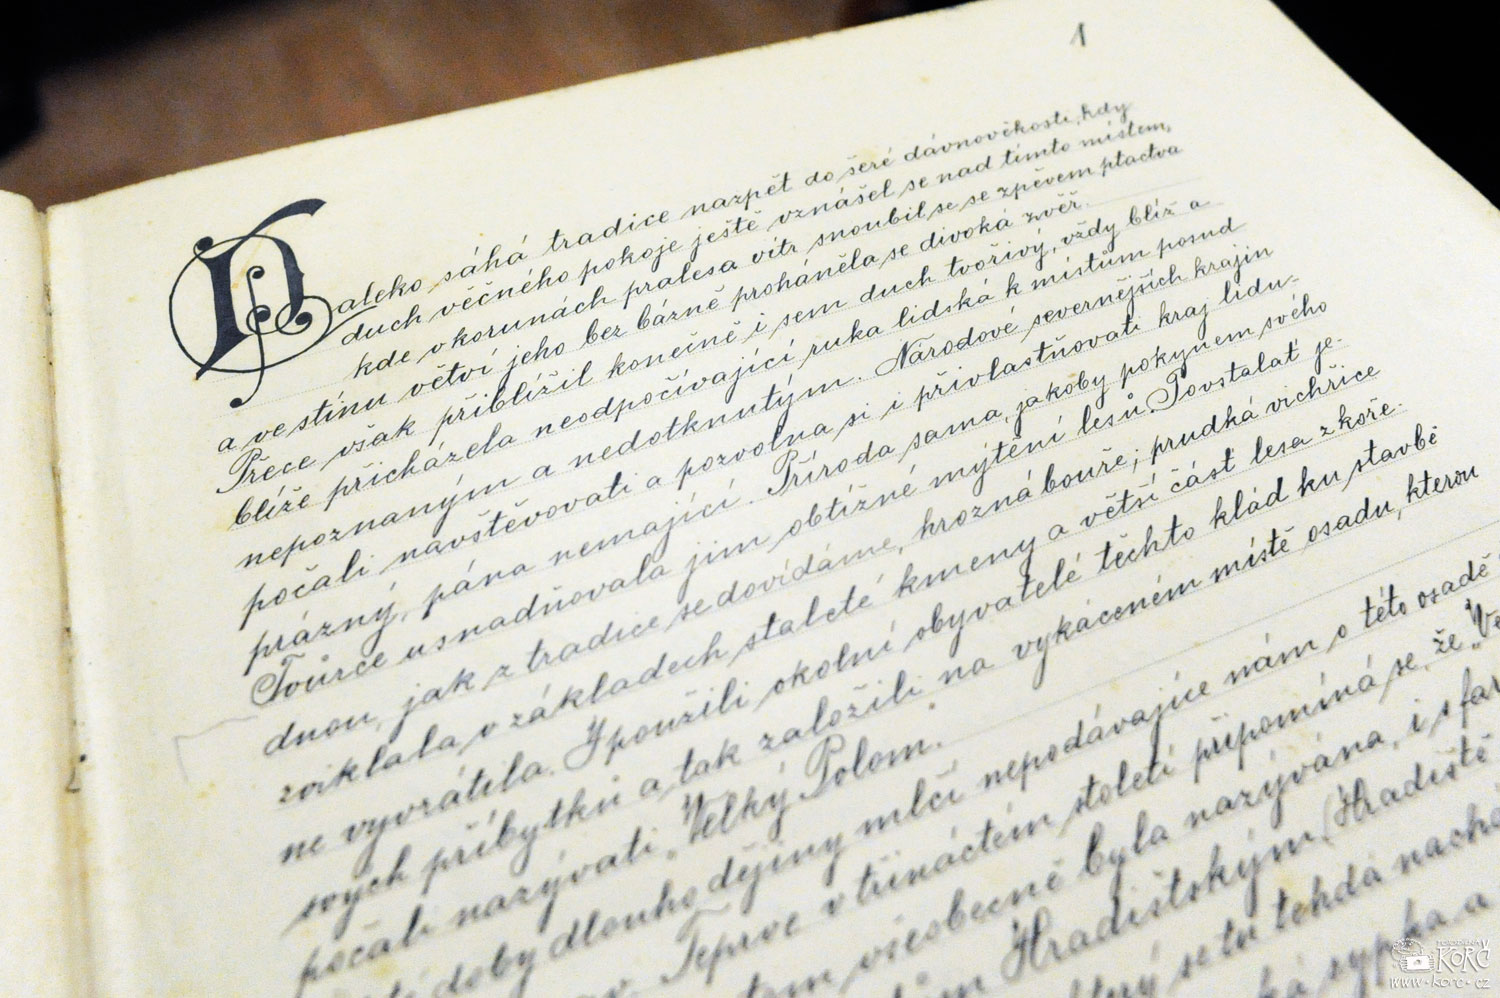 1
Daleko sáhá tradice nazpět do šeré dávnověkosti, kdy
duch věčného pokoje ještě vznášel se nad tímto místem,
kde v korunách pralesa vítr snoubil se se zpěvem ptactva
a ve stínu větví jeho bez bázně proháněla se divoká zvěř.
Přece však přiblížil konečně i sem duch tvořivý, vždy blíž a
blíže přicházela neodpočívající ruka lidská k místům posud
nepoznaným a nedotknutým. Národové severnějších krajin
počali navštěvovati a pozvolna si i přivlastňovati kraj lidu-
prázný, pána nemající. Příroda sama, jakoby pokynem svého
Tvůrce usnadňovala jim obtížné mýtění lesů. Povstalať je-
dnou, jak z tradice se dovídáme, hrozná bouře; prudká vichřice
zviklala v základech staleté kmeny a větší část lesa z koře-
ne vyvrátila. I použili okolní obyvatelé těchto klád ku stavbě
svých příbytků a tak založili na vykáceném místě osadu, kterou
počali nazývati „Velký Polom.
doby dlouho dějiny mlčí nepodávajíce nám o této osadě
Teprve v třináctém století připomíná se, že „Ve
všeobecně byla nazývána, i s far
Hradištským (Hradiště
se tu tehdá nachá
sypka a
KORC
www.korc.cz